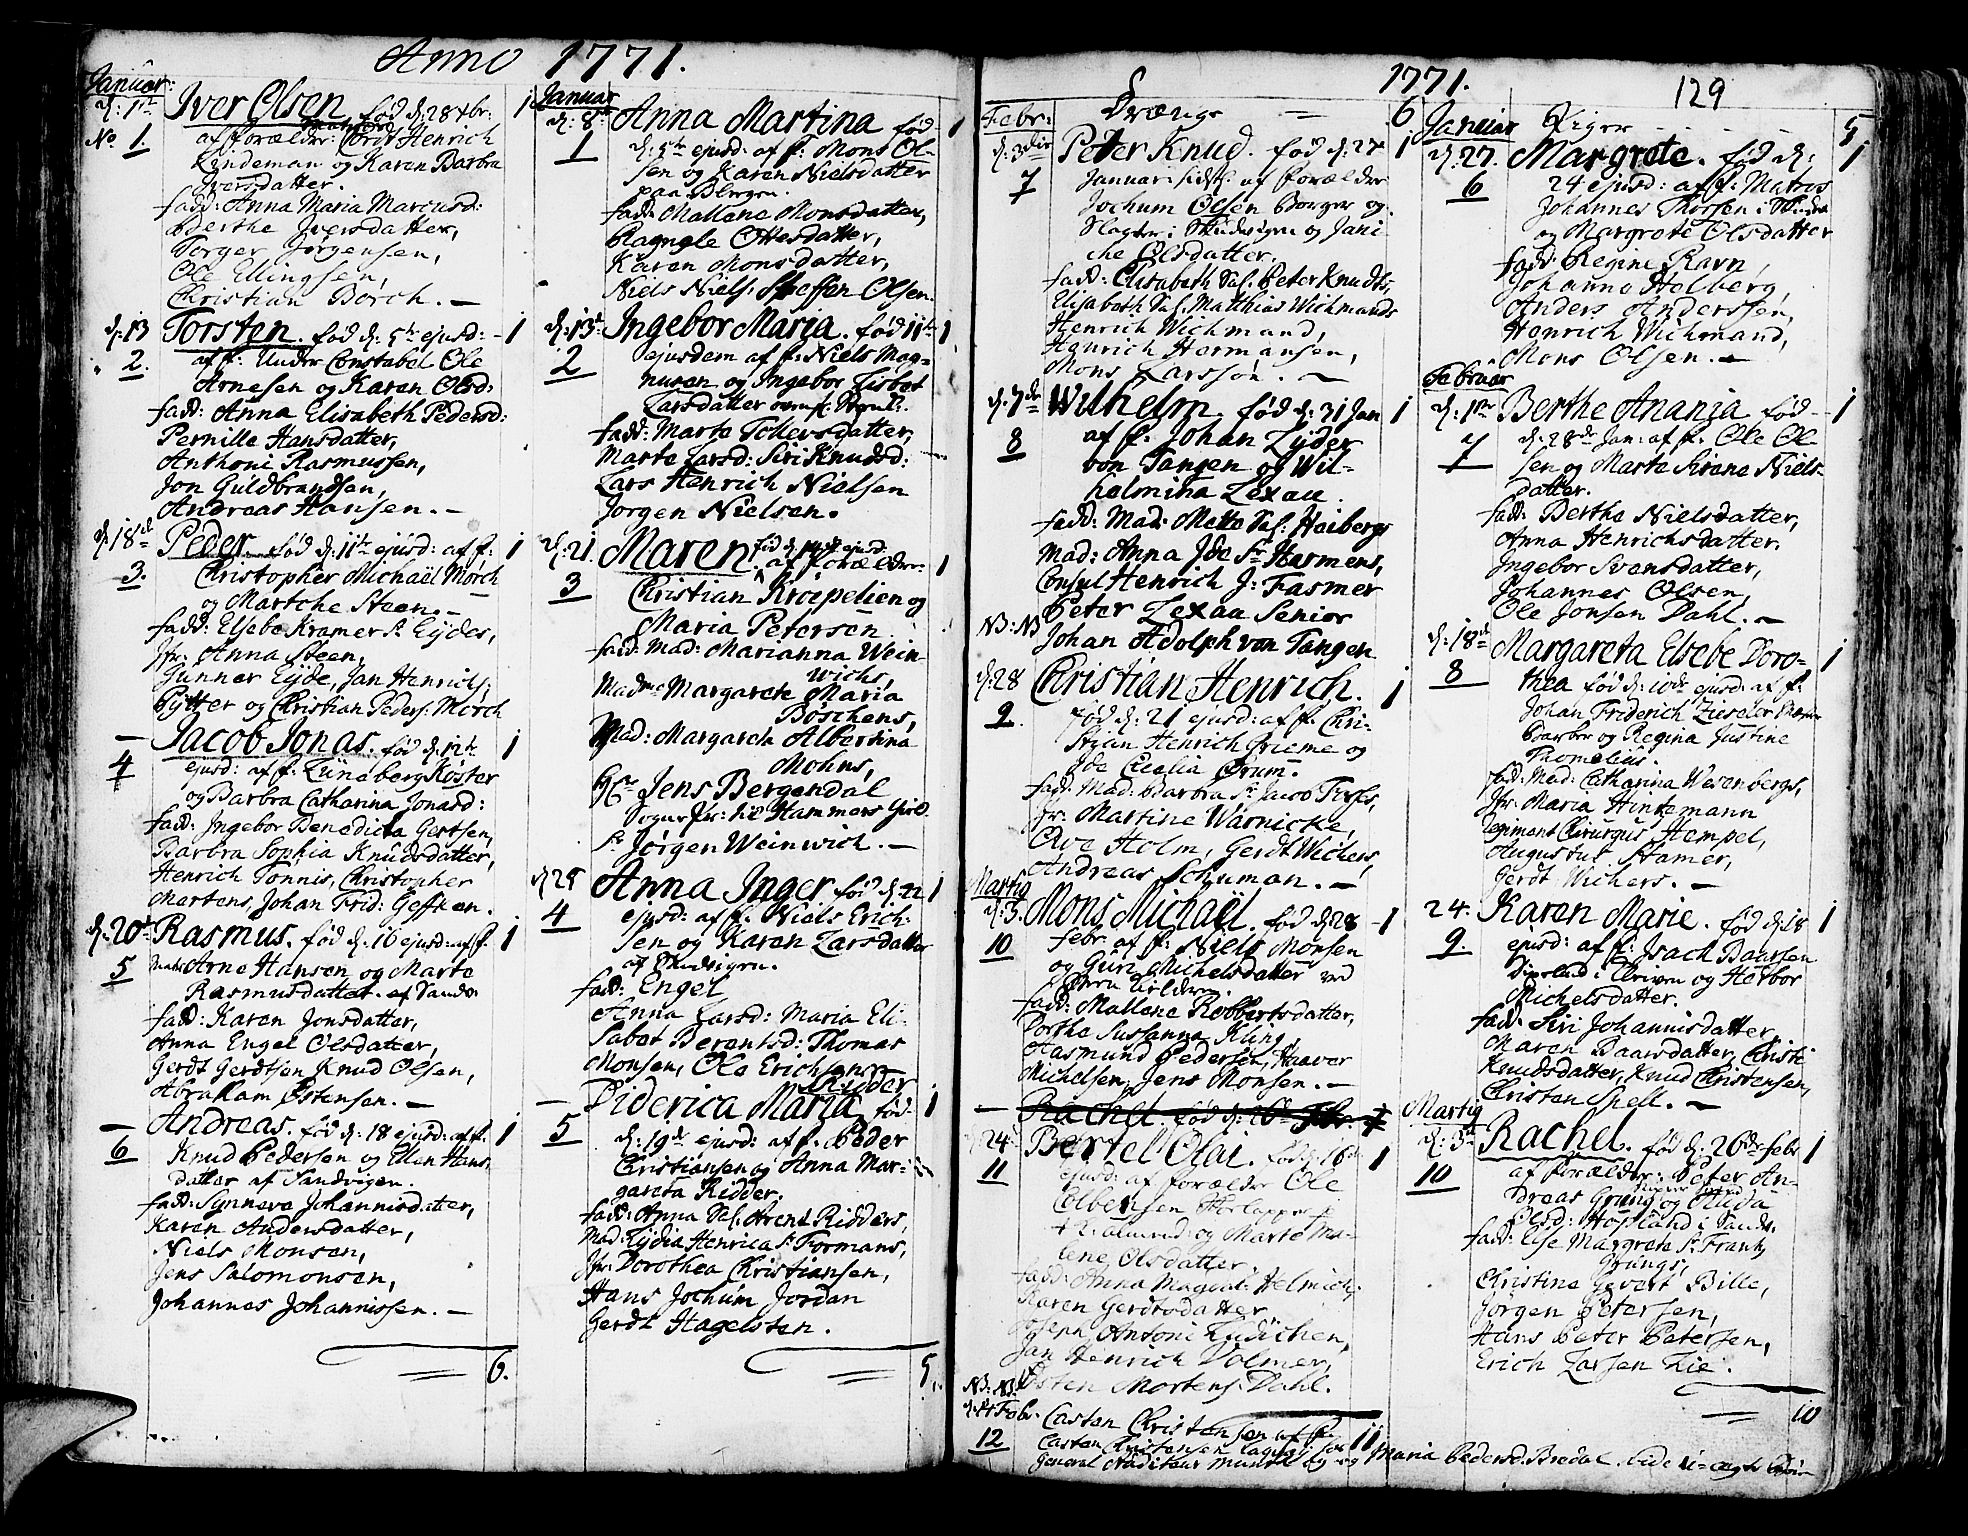 Anno 1771.
Januar:
d: 1te Iver Olsen fød d: 28 xbr: 1
No 1. af forældre: Corst Henrich
Lindeman og Karen Barbra
Iversdatter.
fadd: Anna Maria Marcusd:
Berthe Iversdatter,
Torger Jørgensen,
Ole Ellingsen,
Christian Borch. —
d: 13 Torsten. fød d: 5te ejusd: 1
2. af f: Under Constabel Ole
Arnesen og Karen Olsd:
fadd: Anna Elisabeth Pedersd:
Pernille Hansdatter,
Anthoni Rasmussen,
Jon Guldbrandsen,
Andreas Hansen. —
d: 18de Peder. fød d: 11te ejusd: af f: 1
3. Christopher Michaël Mørch
og Martche Steen. —
fadd: Elsebe Kramer Sr Eydes,
Jfr: Anna Steen,
Gunner Eyde, Jan Henrichs:
Pytter og Christian Peders: Mørch
— Jacob Jonas. fød d: 12te 1
4 ejusd: af f: Lüneberg Köster
og Barbra Catharina Jonasd:
fadd: Ingebor Benedicta Gertsen,
Barbra Sophia Knudsdatter,
Henrich Tonnis, Christopher
Martens, Johan Frid: Geffken.
d: 20de Rasmus. fød d: 16 ejusd: af f. 1
5 Arne Hansen og Marte
Rasmusdatter. af Sandv:
fadd: Karen Jonsdatter,
Anna Engel Olsdatter,
Gerdt Gerdtsen Knud Olsen,
Abraham Østensen. —
— Andreas. fød d: 18 ejusd: af f. 1
6 Knud Pedersen og Ellen Hans
datter af Sandvigen.
fadd: Synneva Johannisdatter,
Karen Andersdatter,
Niels Monsen,
Jens Salomonsen,
Johannes Johannissen. —
6.
Januar
d: 8de Anna Martina fød 1
1 d: 5te ejusd: af f: Mons Ol-
sen og Karen Nielsdatter
paa Bergen.
fadd: Mallene Monsdatter,
Ragngle Ottesdatter,
Karen Monsdatter,
Niels Niels: Steffen Olsen.
d: 13de Ingebor Maria. fød 11te 1
2 ejusdem af f: Niels Mag-
nusen og Ingebor Lisbet
Larsdatter
fadd: Marta Tollevsdatter,
Marte Larsd: Siri Knudsd:
Lars Henrich Nielsen
Jørgen Nielsen.
d: 21 Maren. fød d: 14de ejusd: af forældre: 1
3 Christian Kroepelien og
Maria Petersen
fadd: Mad: Marianna Wein-
wichs,
Madme Margareta Maria
Böschens,
Mad: Margareta Albertina
Mohns,
Hr Jens Bergendal
Sogne Pr: til Hammers Giel.
Sr Jørgen Weinwich. —
d 25 Anna Inger fød d: 22 1
4 ejusd: af f: Niels Erich-
sen og Karen Larsdatter
af Skudvigen.
fadd: Engel
Anna Larsd: Maria Eli-
sabet Berentsd: Thomas
Monsen, Ole Erichsen
Ridder
— Diderica Maria, fød 1
5 d: 19de ejusd: af f. Peder
Christiansen og Anna Mar-
gareta Ridder.
fadd: Anna Sal: Arent Ridders,
Mad: Lydia Henrica Sr Formans,
Jfr: Dorothea Christiansen,
Hans Jochum Jordan
Gerdt Hagelsten.
5.
1771.
129
Febr: Drænge — 6
d: 3die Peter Knud. fød d: 27 1
7 Januar: sidstl: af forældre
Jochum Olsen Borger og
Slagter i Skudvigen og Jani
che Olsdatter.
fadd: Elisabeth Sal: Peter Knudts,
Elisabeth Sal. Matthias Wichmands
Henrich Wichmand,
Henrich Hermansen,
Mons Larsson. —
d: 7de Wilhelm. fød d: 31 Jan 1
8 af f. Johan Lyder
von Tangen og Wil-
helmina Lexau.
fadd: Mad: Mette Sal: Heibergs
Mad: Anna Ide Sr Hasmens,
Consul Henrich J: Fasmer
Peter Lexau Senior
NB: NB Johan Adolph von Tangen
d: 28 Christian Henrich. 1
9. fød d: 21 ejusd: af f: Chri-
stian Henrich Grieme og
Ide Cecilia Ørum.
fadd: Mad: Barbra Sr Jacob Fasts,
Jfr: Martine Warnicke,
Ove Holm, Gerdt Wichers,
Andreas Schuman. —
Martij
d: 3 Mons Michaël. fød d: 28 1
10 Febr af f: Niels Monsen
og Guri Michelsdatter ved
fadd: Mallene Robbertsdatter,
Dorthe Susanna Kling
Aasmund Pedersen, Haaver
Michelsen, Jens Monsen. —
— Rachel. fød d: 26de Febr. 1
24 Bertel Olai. fød d: 16de 1
11 ejusd: af forældre Ole
Olbertsen Skorlappere
og Marte Ma-
lene Olsdatter.
fadd: Anna Magdal: Helmich,
Karen Gerdtsdatter,
Joseph Antoni Ludichen,
Jan Henrich Volmer,
NB: NB: Østen Mortens: Dahl.
d: 14 Febr. Casten Christensen af f:
12 Casten Christensen 11 Maria Pedersd. Bredal.
General Auditeur
Januar Piger - - - 5
d: 27. Margrete. fød d: 1
6 24 ejusd: af f: Matros
Johannes Thorsen i Skudv
og Margrete Olsdatter
fadd: Regine Ravn,
Johanna Holberg,
Anders Anderssen,
Henrich Wichmand,
Mons Olsen. —
Februar
d: 1te Berthe Ananja fød 1
7 d: 28de Jan: af f. Ole Ol
sen og Marta Sirena Niels
datter.
fadd: Berthe Nielsdatter,
Anna Henrichsdatter.
Ingebor Svensdatter,
Johannes Olsen,
Ole Jonsen Dahl. —
d: 18de Margareta Elsebe Doro- 1
8 thea fød d: 10de ejusd: af f:
Johan Friderich Zieseler
og Regina Justine
Thomelius.
fad: Mad: Catharina Wesenbergs,
Jfr: Maria Hintzmann
Regiment Chirurgus Hempel,
Augustus Stamer,
Gerdt Wichers. —
24. Karen Marie. fød d: 18 1
9. ejusd: af f: Isach Baarsen
og Herbor
Michelsdatter.
fadd: Siri Johannisdatter,
Maren Baarsdatter, Christi
Knudsdatter, Knud Christensen,
Christen Spell. —
Martij
d: 3de Rachel. fød d: 26de Febr 1
10 af forældre: Peter An-
dreas Grung og Huda
Olsd: Hopland i Sandv.
fadd: Else Margrete Sr Frantz
Grungs,
Christine Gevert Bille,
Jørgen Petersen,
Hans Peter Petersen,
Erich Larsen Lie.
10